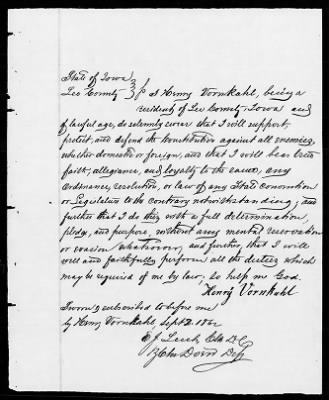 State of Iowa
Lee County } ss I Henry Vornkahl, being a
resident of Lee County Iowa and
of lawful age, do solemnly swear that I will support,
protect, and defend the Constitution against all enemies,
whether domestic or foreign, and that I will bear true
faith, allegiance, and loyalty to the same, any
ordinance, resolution, or law of any State convention
or Legislature to the contrary notwithstanding; and
further that I do this with a full determination,
pledge, and purpose, without any mental reservation
or evasion whatsoever; and further, that I will
well and faithfully perform all the duties which
may be required of me by law. So help me God.
Henry Vornkahl
Sworn & subscribed to before me
by Henry Vornkahl, Sept 2. 1862
E J Leech Clk D.C.
By Dep